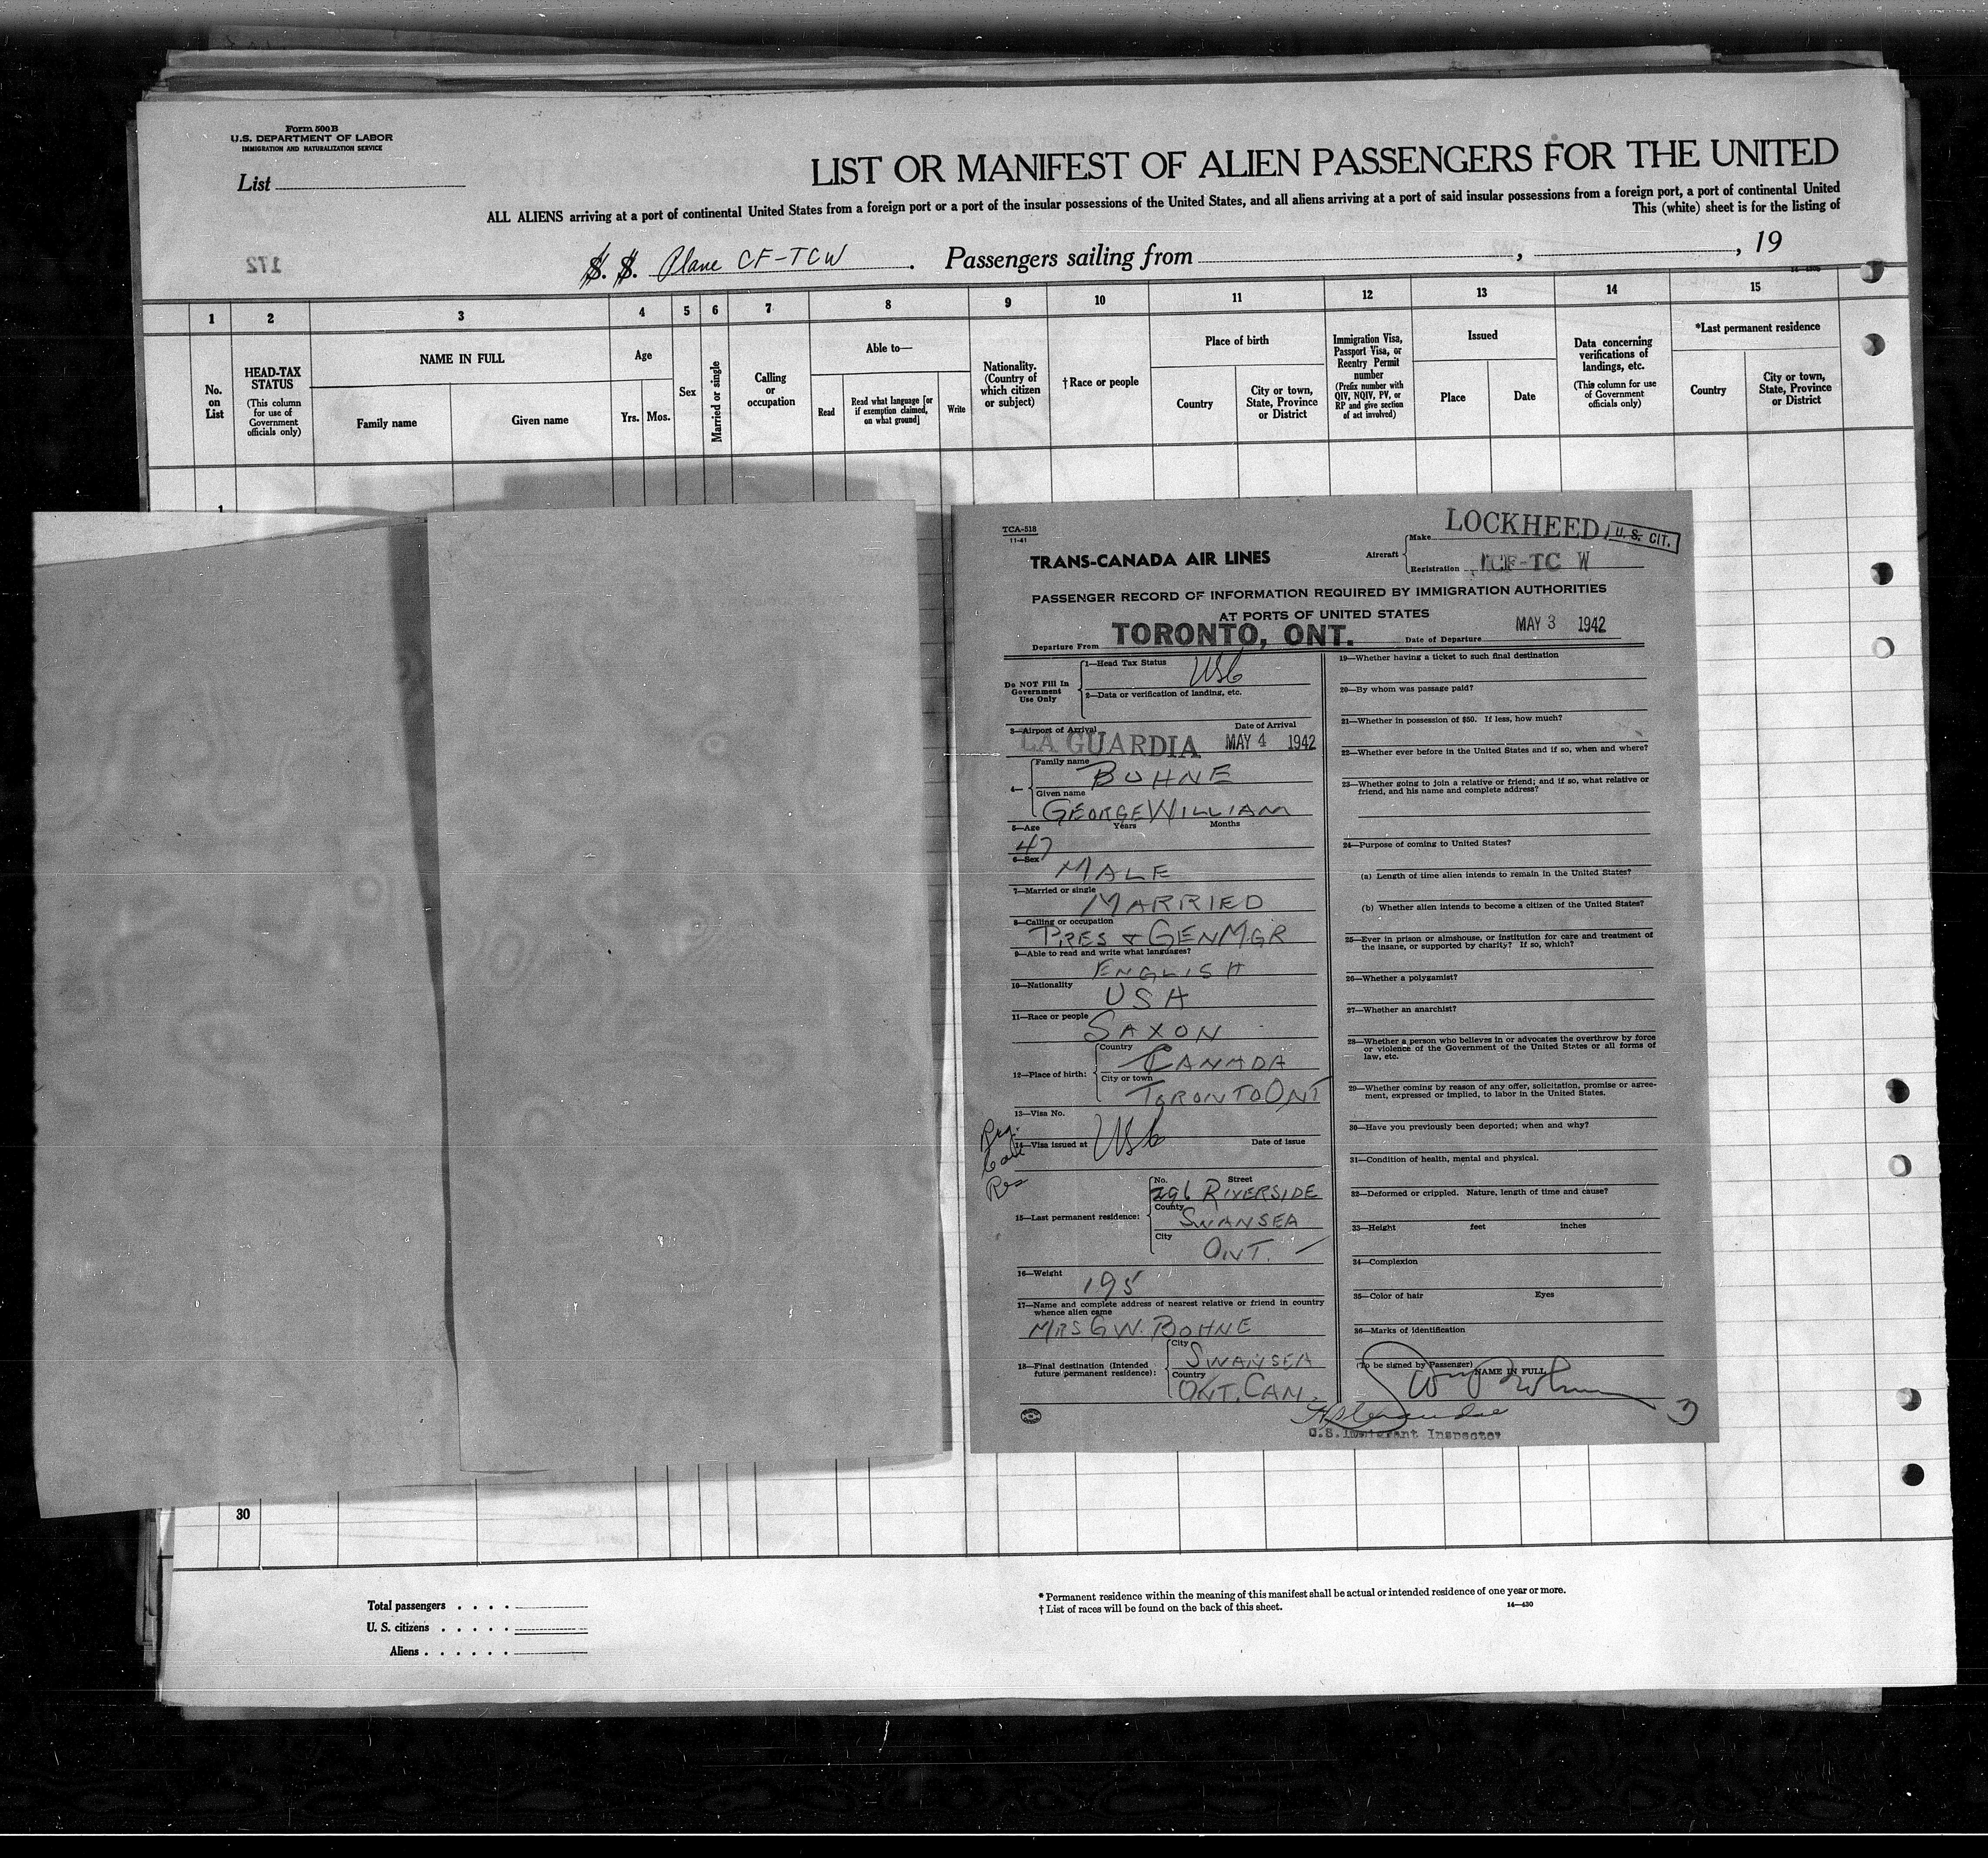 Form 500 B
U.S. DEPARTMENT OF LABOR
IMMIGRATION AND NATURALIZATION SERVICE
List
LIST OR MANIFEST OF ALIEN PASSENGERS FOR THE UNITED
ALL ALIENS arriving at a port of continental United States from a foreign port or a port of the insular possessions of the United States, and all aliens arriving at a port of said insular possessions from a foreign port, a port of continental United
This (white) sheet is for the listing of
172
S. S. Plane CF-TCW . Passengers sailing from , , 19
1 2 3 4 5 6 7 8 9 10 11 12 13 14 15
No. on List
HEAD-TAX STATUS
(This column for use of Government officials only)
NAME IN FULL
Family name
Given name
Age
Yrs. Mos.
Sex
Married or single
Calling or occupation
Able to—
Read
Read what language [or if exemption claimed, on what ground]
Write
Nationality. (Country of which citizen or subject)
†Race or people
Place of birth
Country
City or town, State, Province or District
Immigration Visa, Passport Visa, or Reentry Permit number
(Prefix number with QIV, NQIV, PV, or RP and give section of act involved)
Issued
Place
Date
Data concerning verifications of landings, etc.
(This column for use of Government officials only)
*Last permanent residence
Country
City or town, State, Province or District
1
TCA-518
11-41
TRANS-CANADA AIR LINES
Aircraft
Make LOCKHEED
U. S. CIT.
Registration CF-TC W
PASSENGER RECORD OF INFORMATION REQUIRED BY IMMIGRATION AUTHORITIES
AT PORTS OF UNITED STATES
Departure From TORONTO, ONT. Date of Departure MAY 3 1942
Do NOT Fill In Government Use Only
1—Head Tax Status USC
2—Data or verification of landing, etc.
3—Airport of Arrival Date of Arrival
LA GUARDIA MAY 4 1942
4— Family name
BOHNE
Given name
GEORGE WILLIAM
5—Age Years Months
47
6—Sex
MALE
7—Married or single
MARRIED
8—Calling or occupation
PRES & GEN MGR
9—Able to read and write what languages?
ENGLISH
10—Nationality
USA
11—Race or people
SAXON
12—Place of birth:
Country
CANADA
City or town
TORONTO ONT
13—Visa No.
14—Visa issued at USC Date of issue
Res
15—Last permanent residence:
No. Street
296 RIVERSIDE
County
SWANSEA
City
ONT.
16—Weight
195
17—Name and complete address of nearest relative or friend in country whence alien came
MRS G W. BOHNE
18—Final destination (Intended future permanent residence):
City
SWANSEA
Country
ONT. CAN.
19—Whether having a ticket to such final destination
20—By whom was passage paid?
21—Whether in possession of $50. If less, how much?
22—Whether ever before in the United States and if so, when and where?
23—Whether going to join a relative or friend; and if so, what relative or
friend, and his name and complete address?
24—Purpose of coming to United States?
(a) Length of time alien intends to remain in the United States?
(b) Whether alien intends to become a citizen of the United States?
25—Ever in prison or almshouse, or institution for care and treatment of
the insane, or supported by charity? If so, which?
26—Whether a polygamist?
27—Whether an anarchist?
28—Whether a person who believes in or advocates the overthrow by force
or violence of the Government of the United States or all forms of
law, etc.
29—Whether coming by reason of any offer, solicitation, promise or agree-
ment, expressed or implied, to labor in the United States.
30—Have you previously been deported; when and why?
31—Condition of health, mental and physical.
32—Deformed or crippled. Nature, length of time and cause?
33—Height feet inches
34—Complexion
35—Color of hair Eyes
36—Marks of identification
(To be signed by Passenger) NAME IN FULL
U.S. Immigrant Inspector
3
30
Total passengers
U. S. citizens
Aliens
* Permanent residence within the meaning of this manifest shall be actual or intended residence of one year or more.
† List of races will be found on the back of this sheet.
14—430